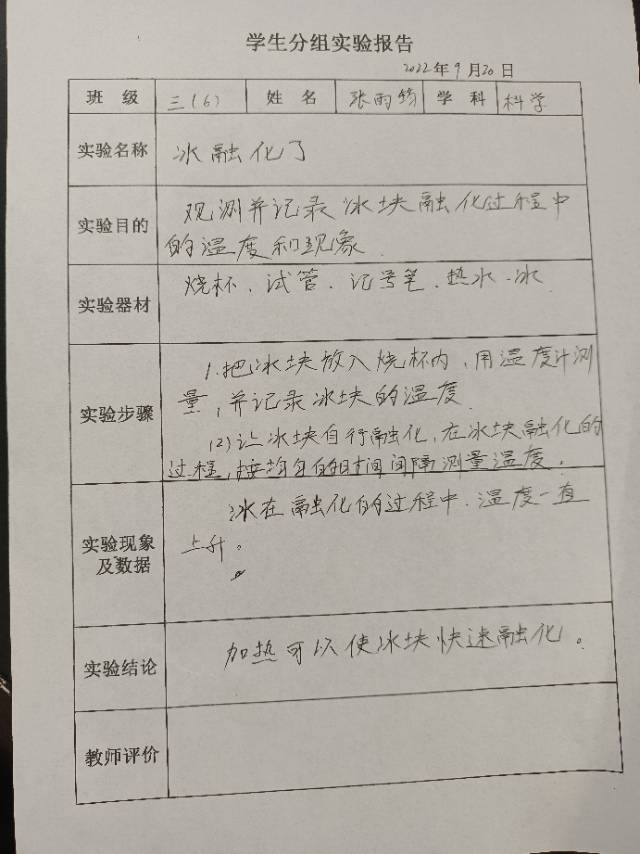 学生分组实验报告
2022年9月20日
班 级 三(6) 姓 名 张雨筠 学 科 科学
实验名称 冰融化了
实验目的 观测并记录冰块融化过程中
的温度和现象.
实验器材 烧杯、试管、记号笔、热水、冰
实验步骤 1.把冰块放入烧杯内,用温度计测
量,并记录冰块的温度.
(2)让冰块自行融化,在冰块融化的
过程,按均匀的时间间隔测量温度.
实验现象及数据 冰在融化的过程中.温度一直
上升。
实验结论 加热可以使冰块快速融化。
教师评价